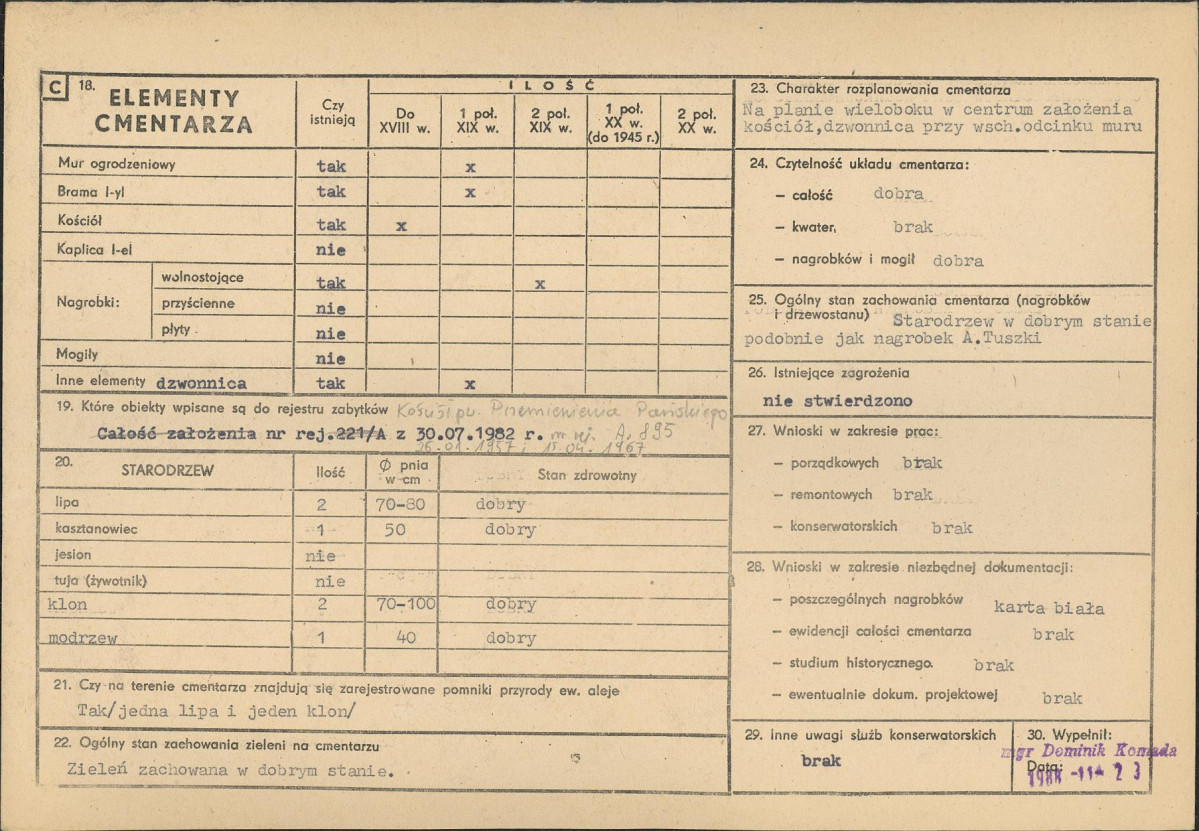 C 18. ELEMENTY CMENTARZA
Czy istnieją
ILOŚĆ
Do XVIII w.
1 poł. XIX w.
2 poł. XIX w.
1 poł. XX w. (do 1945 r.)
2 poł. XX w.
Mur ogrodzeniowy tak x
Brama I-yl tak x
Kościół tak x
Kaplica I-el nie
Nagrobki:
wolnostojące tak x
przyścienne nie
płyty nie
Mogiły nie
Inne elementy dzwonnica tak x
19. Które obiekty wpisane są do rejestru zabytków Kościół pw. Przemienienia Pańskiego
Całość założenia nr rej.221/A z 30.07.1982 r. nr rej. A.895
26.01.1957 i 15.04.1967
20. STARODRZEW Ilość Ø pnia w cm Stan zdrowotny
lipa 2 70-80 dobry
kasztanowiec 1 50 dobry
jesion nie
tuja (żywotnik) nie
klon 2 70-100 dobry
modrzew 1 40 dobry
21. Czy na terenie cmentarza znajdują się zarejestrowane pomniki przyrody ew. aleje
Tak/jedna lipa i jeden klon/
22. Ogólny stan zachowania zieleni na cmentarzu
Zieleń zachowana w dobrym stanie.
23. Charakter rozplanowania cmentarza
Na planie wieloboku w centrum założenia
kościół,dzwonnica przy wsch.odcinku muru
24. Czytelność układu cmentarza:
— całość dobra
— kwater, brak
— nagrobków i mogił dobra
25. Ogólny stan zachowania cmentarza (nagrobków
i drzewostanu) Starodrzew w dobrym stanie
podobnie jak nagrobek A.Tuszki
26. Istniejące zagrożenia
nie stwierdzono
27. Wnioski w zakresie prac:
— porządkowych brak
— remontowych brak
— konserwatorskich brak
28. Wnioski w zakresie niezbędnej dokumentacji:
— poszczególnych nagrobków karta biała
— ewidencji całości cmentarza brak
— studium historycznego. brak
— ewentualnie dokum. projektowej brak
29. Inne uwagi służb konserwatorskich
brak
30. Wypełnił:
mgr Dominik Komada
Data:
1988 -11- 23